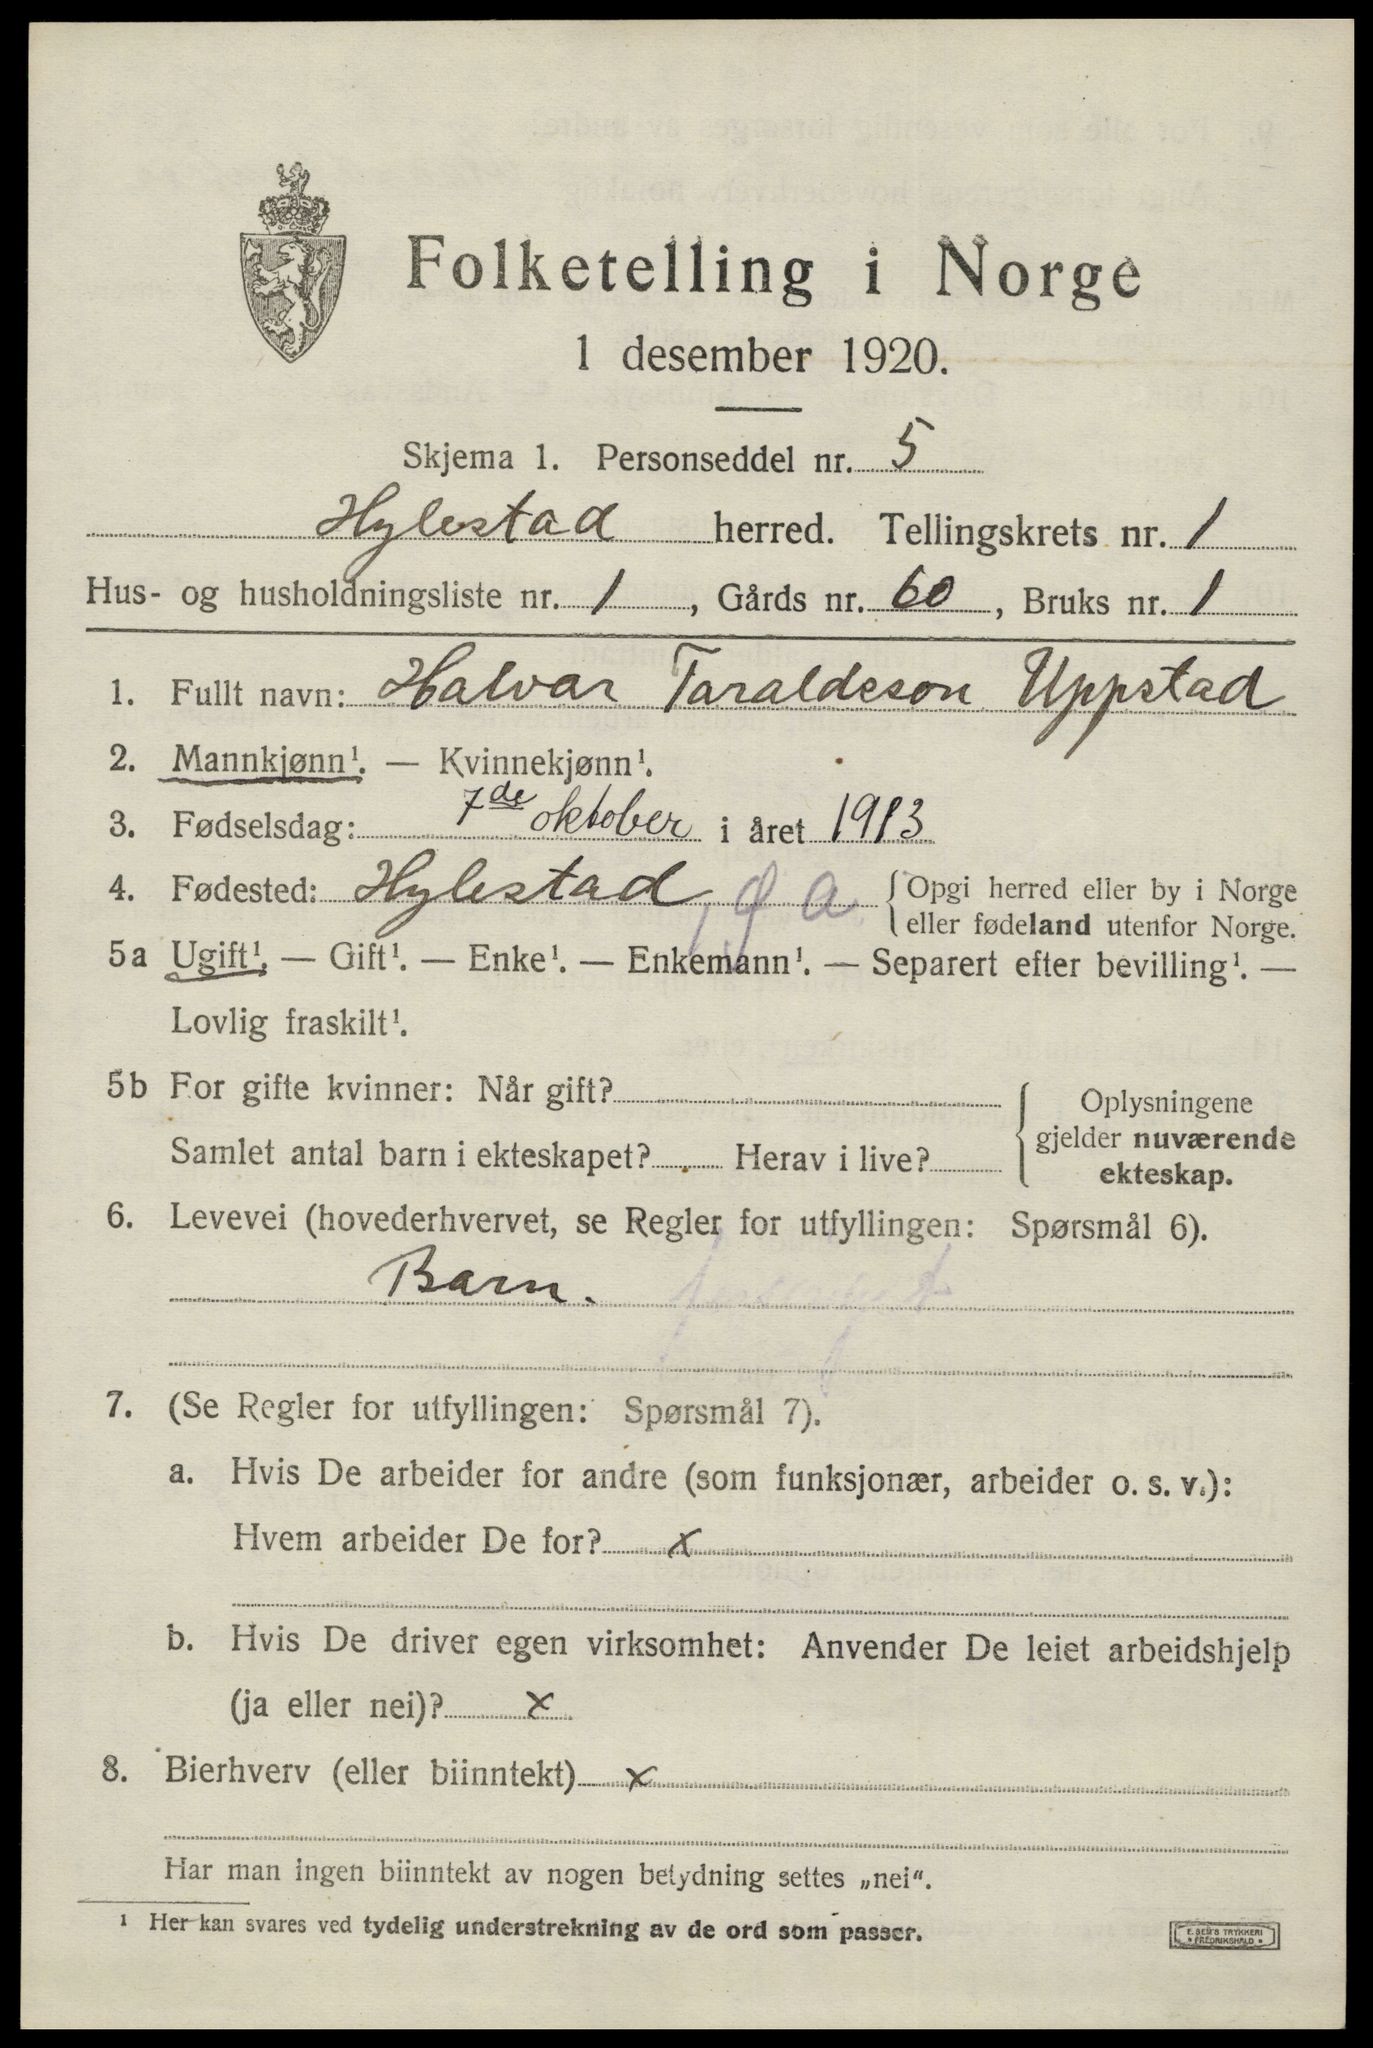 Folketelling i Norge
1 desember 1920.
Skjema 1. Personseddel nr. 5
Hylestad herred. Tellingskrets nr. 1
Hus- og husholdningsliste nr. 1, Gårds nr. 60, Bruks nr. 1
1. Fullt navn: Halvar Taraldeson Uppstad
2. Mannkjønn¹. — Kvinnekjønn¹.
3. Fødselsdag: 7de oktober i året 1913
4. Fødested: Hylestad, Ø a {Opgi herred eller by i Norge
eller fødeland utenfor Norge.
5a Ugift¹. — Gift¹. — Enke¹. — Enkemann¹. — Separert efter bevilling¹. —
Lovlig fraskilt¹.
5b For gifte kvinner: Når gift?
Samlet antal barn i ekteskapet? Herav i live?
{Oplysningene
gjelder nuværende
ekteskap.
6. Levevei (hovederhvervet, se Regler for utfyllingen: Spørsmål 6).
Barn. forsørget
7. (Se Regler for utfyllingen: Spørsmål 7).
a. Hvis De arbeider for andre (som funksjonær, arbeider o. s. v.):
Hvem arbeider De for? x
b. Hvis De driver egen virksomhet: Anvender De leiet arbeidshjelp
(ja eller nei)? x
8. Bierhverv (eller biinntekt) x
Har man ingen biinntekt av nogen betydning settes „nei“.
¹ Her kan svares ved tydelig understrekning av de ord som passer.
E. SEM'S TRYKKERI
FREDRIKSHALD